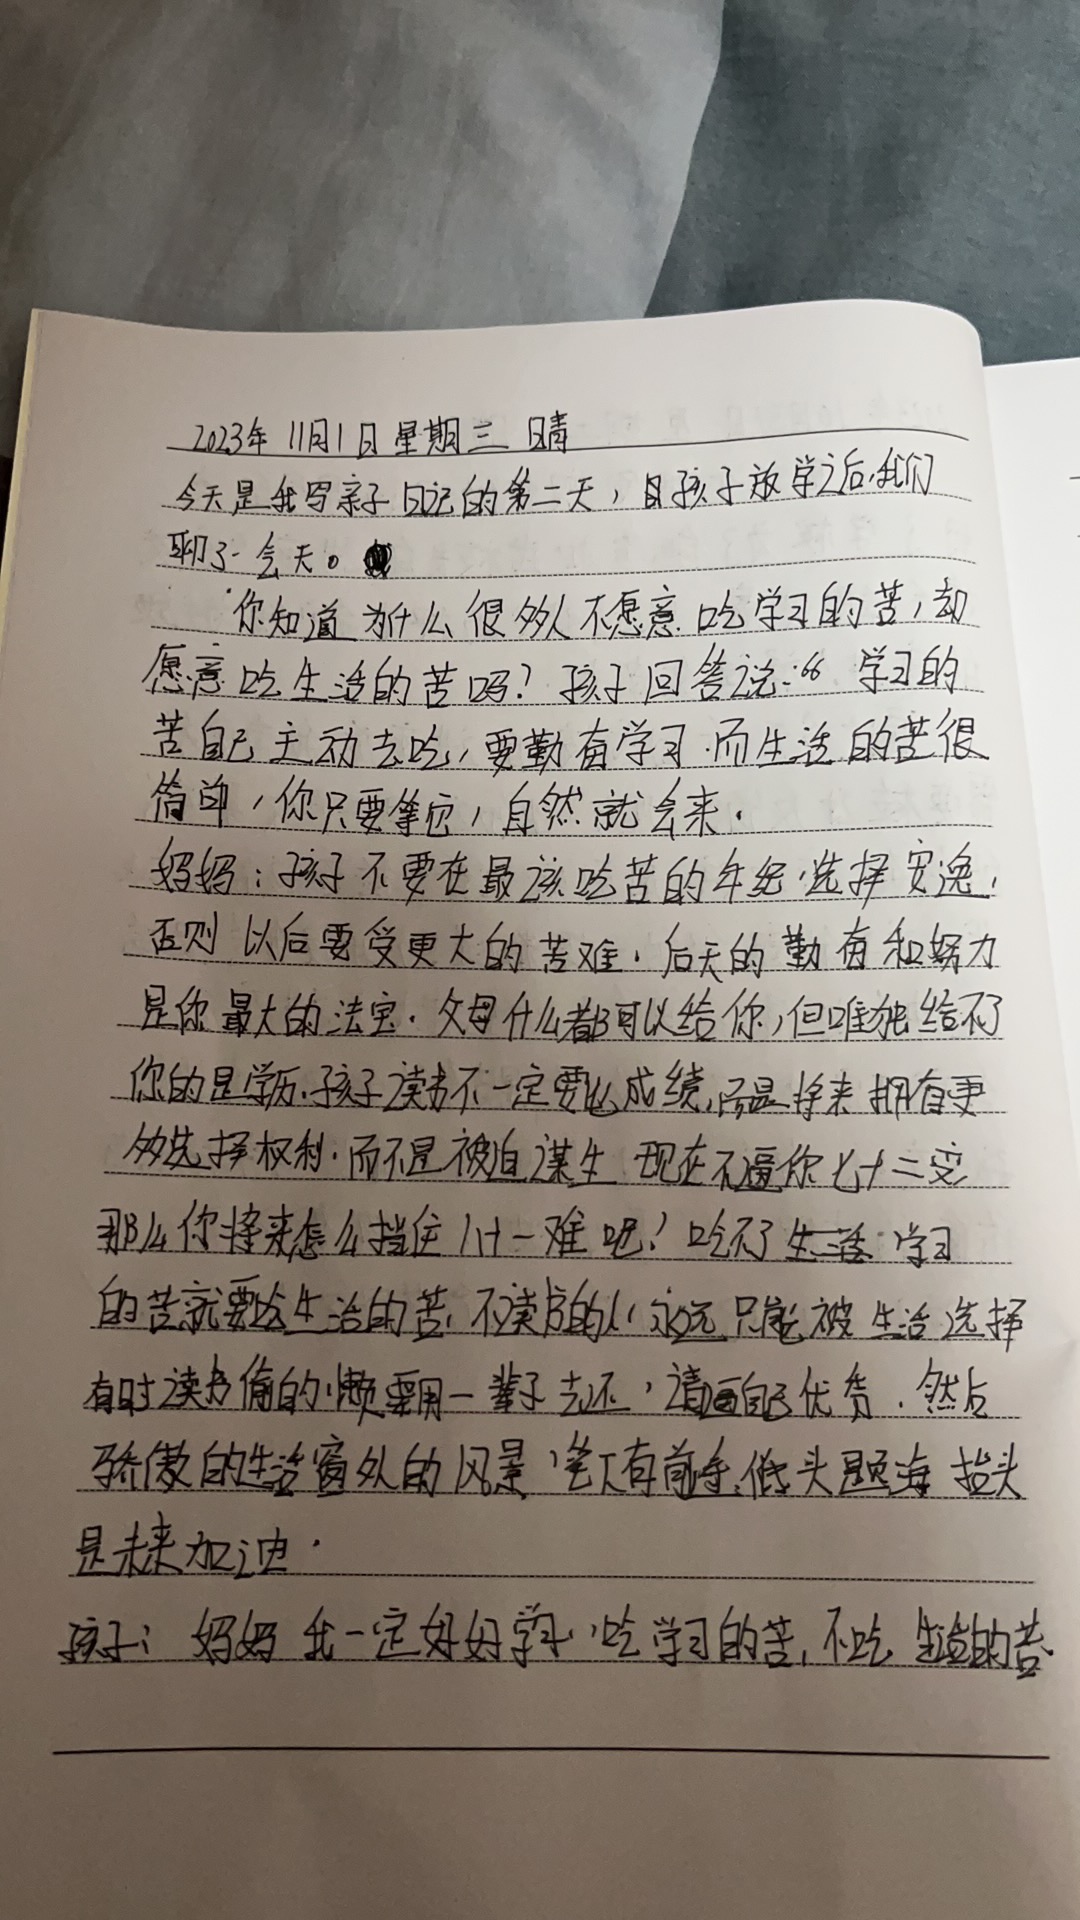 2023年 11月1日 星期三 晴
今天是我写亲子日记的第二天，自孩子放学之后，我们
聊了一会天。
你知道为什么很多人不愿意吃学习的苦，却
愿意吃生活的苦吗？孩子回答说：“学习的
苦自己主动去吃，要勤奋学习．而生活的苦很
简单，你只要等它，自然就会来．
妈妈：孩子不要在最该吃苦的年纪．选择安逸，
否则 以后要受更大的苦难．后天的勤奋和努力
是你最大的法宝．父母什么都可以给你，但唯独给不了
你的是学历．孩子读书不一定要 成绩，而是将来拥有更
多选择权利．而不是被迫谋生 现在不逼你七十二变
那么你将来怎么挡住八十一难呢？吃不了生活 学习
的苦就要吃生活的苦，不读书的人永远只能被生活选择
有时读书偷的懒要用一辈子去还，请 自己优秀．然后
骄傲的生活窗外的风景，笔下有前途．低头题海 抬头
是未来加油．
孩子：妈妈 我一定好好学习，吃学习的苦，不吃 生活的苦